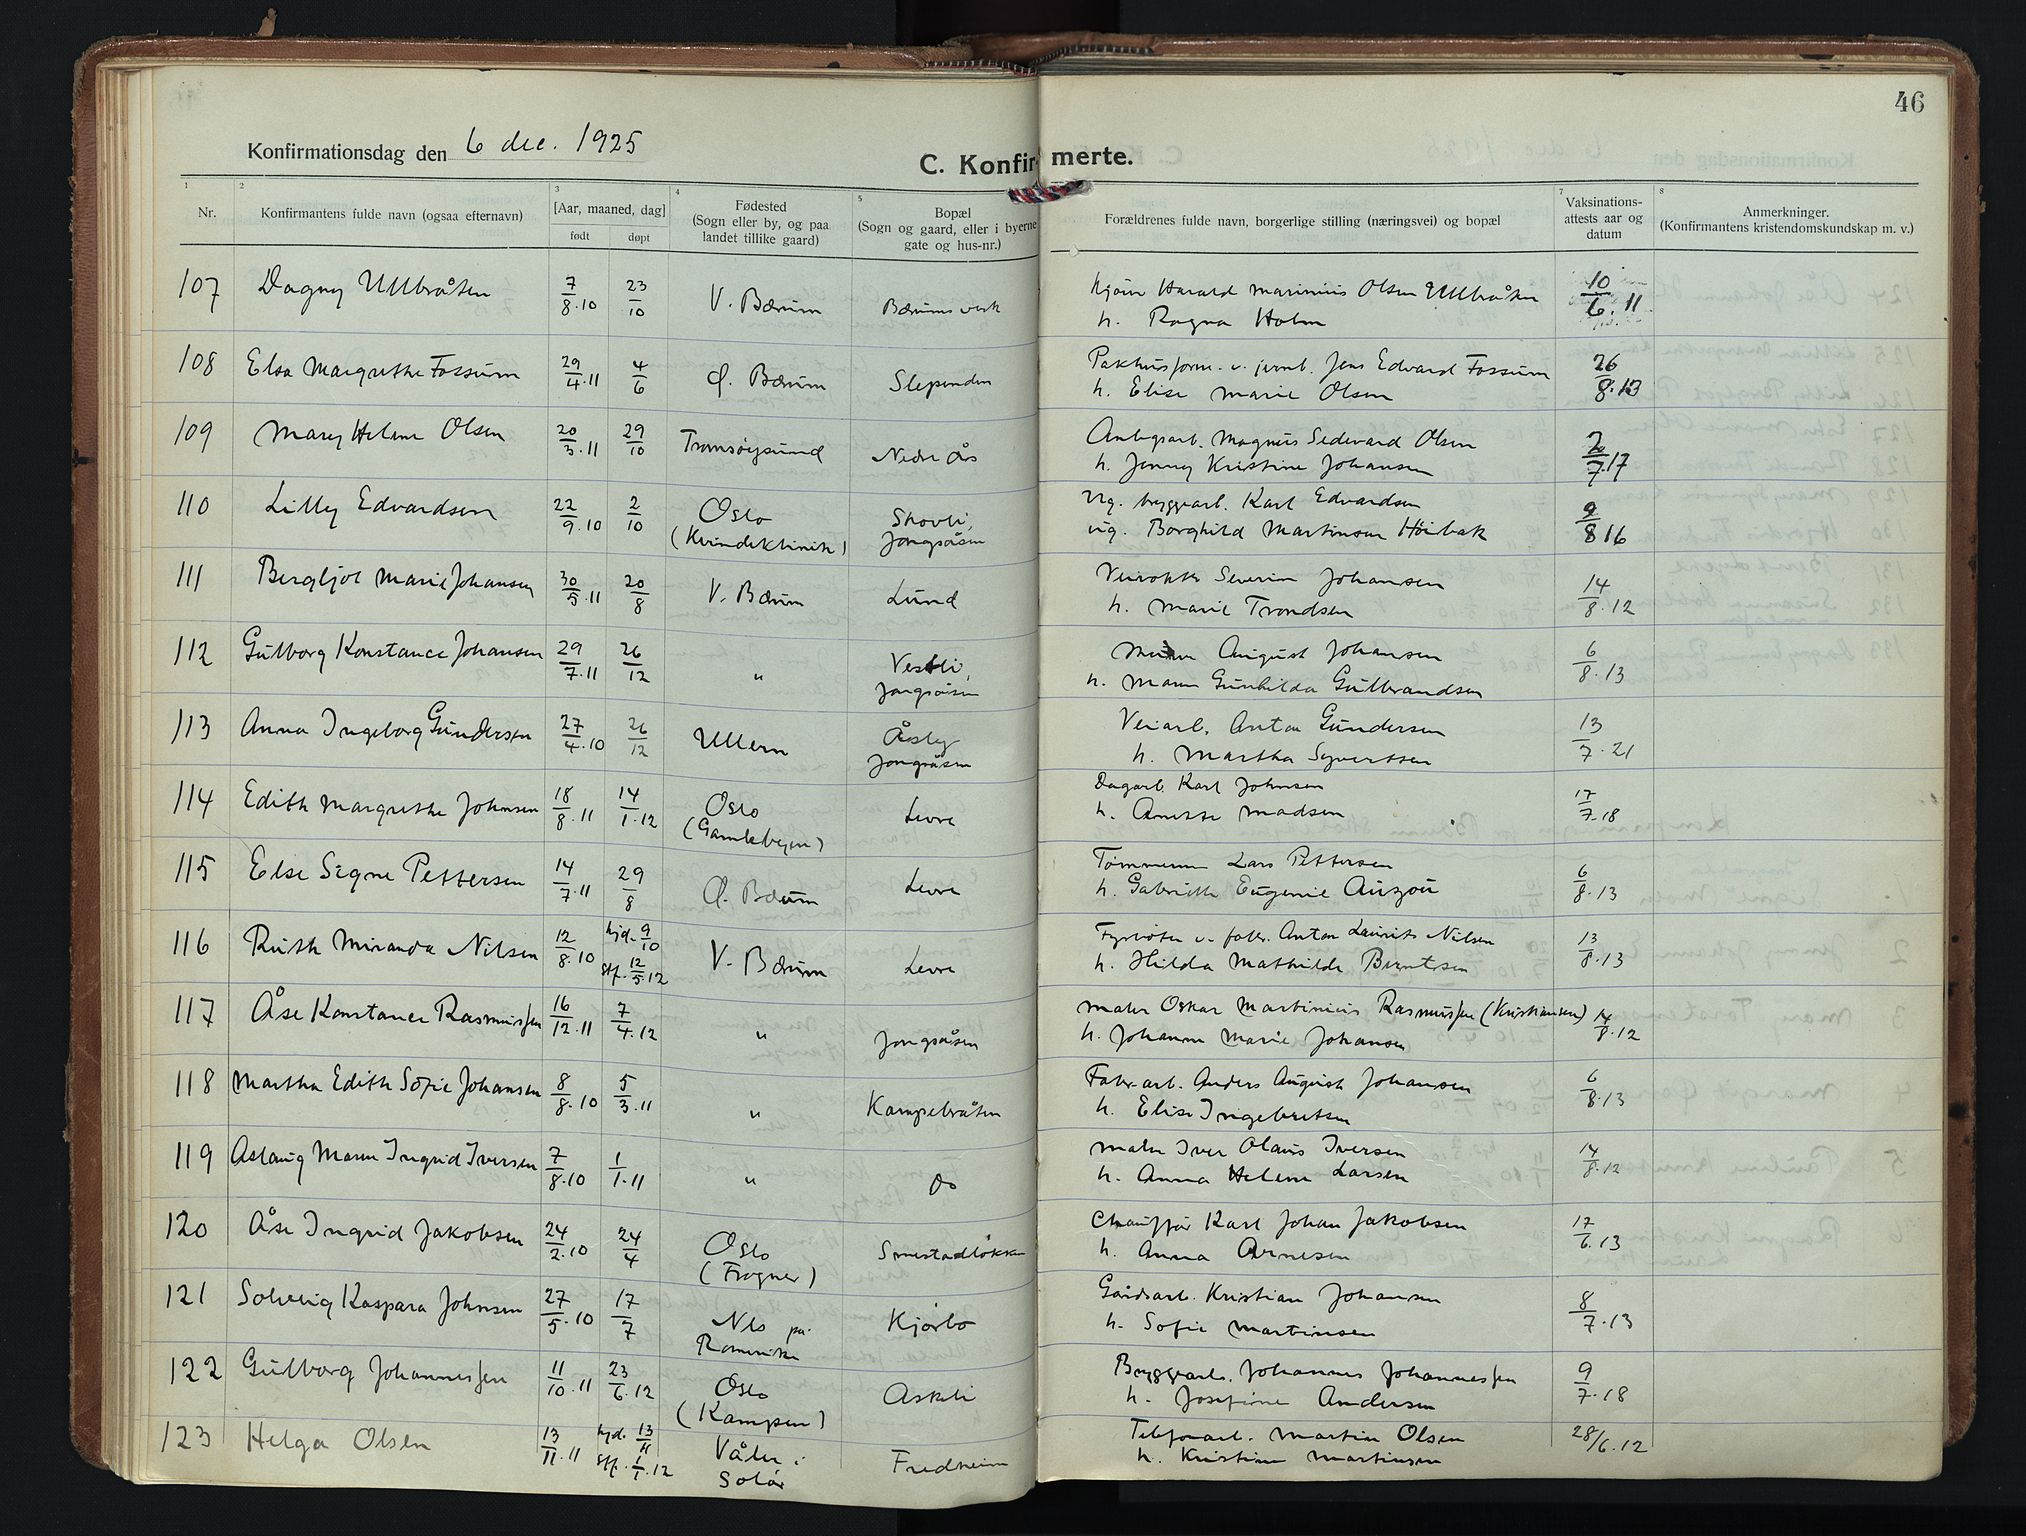 46
Konfirmationsdag den 6 dec. 1925
C. Konfirmerte.
1 2 3 4 5 7 8
Nr.
Konfirmantens fulde navn (ogsaa efternavn)
[Aar, maaned, dag]
født døpt
Fødested
(Sogn eller by, og paa
landet tillike gaard)
Bopæl
(Sogn og gaard, eller i byerne
gate og hus-nr.)
Forældrenes fulde navn, borgerlige stilling (næringsvei) og bopæl
Vaksinations-
attests aar og
datum
Anmerkninger.
(Konfirmantens kristendomskundskap m. v.)
107 Dagny Ullbråten 7/8.10 23/10 V. Bærum Bærums verk Harald Marinius Olsen Ullbråten 10/6.11
h. Ragna Holm
108 Elsa Margrethe Fossum 29/4.11 4/6 Ø. Bærum Slependen Pakhusform. v. jernb. Jens Edvard Fossum 26/8.13
h. Elise Marie Olsen
109 Mary Helene Olsen 20/3.11 29/10 Tromsøysund Nedre Ås Anlegsarb. Magnus Sedevard Olsen 2/7.17
h. Jenny Kristine Johansen
110 Lilly Edvardsen 22/9.10 2/10 Oslo Skovli, Ug. bryggearb. Karl Edvardsen 9/8 16
(Kvindeklinik) Jongsåsen ug. Borghild Martinsen Höibak
111 Bergljot Marie Johansen 30/5.11 20/8 V. Bærum Lund Veivokter Severin Johansen 14/8.12
h. Marie Trondsen
112 Gulborg Konstance Johansen 29/7.11 26/12 " Vestli, August Johansen 6/8.13
Jongsåsen h. Maren Gunhilda Gulbrandsen
113 Anna Ingeborg Gundersen 27/4.10 26/12 Ullern Åsly Veiarb. Anton Gundersen 13/7.21
Jongsåsen h. Martha Syvertsen
114 Edith Margrethe Johnsen 18/8.11 14/1.12 Oslo Levre Dagarb. Karl Johnsen 17/7.18
(Gamlebyen) h. Anette Madsen
115 Else Signe Pettersen 14/7.11 29/8 Ø. Bærum Levre Tømmerm. Lars Pettersen 6/8.13
h. Gabrielle Eugenie Auzou
116 Ruth Miranda Nilsen 12/8.10 hjd. 9/10 V. Bærum Levre Fyrbøter v. fabr. Anton Laurits Nilsen 13/8.13
stf. 12/5.12 h. Hilda Mathilde Berntsen
117 Åse Konstance Rasmussen 16/12.11 7/4.12 " Jongsåsen Maler Oskar Martinius Rasmussen (Kristiansen) 14/8.12
h. Johanne Marie Johansen
118 Martha Edith Sofie Johansen 8/8.10 5/3.11 " Kampebråten Fabr.arb. Anders August Johansen 6/8.13
h. Elise Ingebretsen
119 Aslaug Maren Ingrid Iversen 7/8.10 1/1.11 " do Maler Iver Olaus Iversen 14/8.12
h. Anna Helene Larsen
120 Åse Ingrid Jakobsen 24/2.10 24/4 Oslo Smestadløkken Chauffør Karl Johan Jakobsen 17/6.13
(Frogner) h. Anna Arnesen
121 Solveig Kaspara Johnsen 27/5.10 17/7 Nes på Kjørbo Gårdsarb. Kristian Johansen 8/7.13
Romerike h. Sofie Martinsen
122 Gulborg Johannessen 11/10.11 23/6.12 Oslo Askeli Bryggearb. Johannes Johannessen 9/7.18
(Kampen) h. Josefine Andersen
123 Helga Olsen 13/11.11 hjd. 13/11 Våler i Fredheim Telefonarb. Martin Olsen 28/6.12
stf. 1/1.12 Solør h. Kristine Martinsen